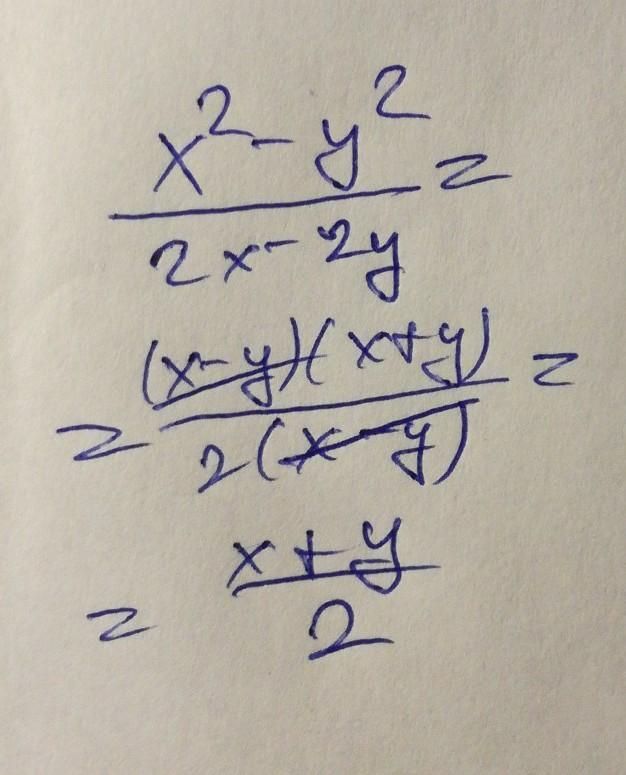 x² - y² =
2x - 2y
(x-y)(x+y) =
= 2(x-y)
x + y
= 2